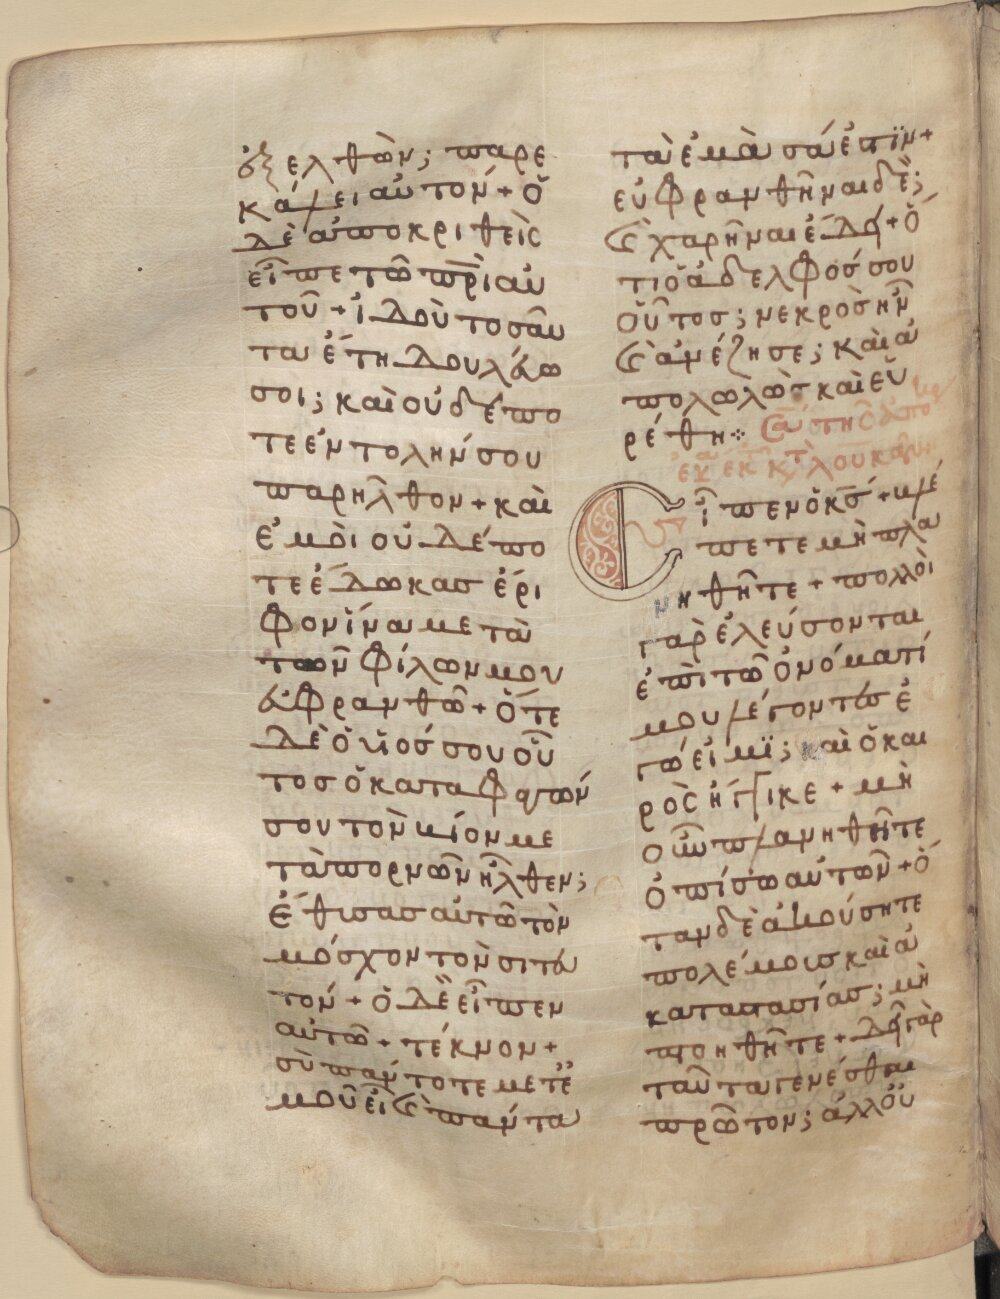 ἐξελθὼν; παρε
κάλει αὐτον + ὁ
δὲ ἀποκριθεὶς
εἶπε τῶ πρὶ αὐ
τοῦ + ἰδοὺ τοσαῦ
τα ἔτη δουλεύω
σοι; καὶ οὐδέπο
τε ἐντολήν σου
παρῆλθον + καὶ
ἐμοὶ οὐδέπο
τε ἔδωκας ἔρι
φον ἵνα μετὰ
τῶν φίλων μου
εὐφρανθῶ + ὅτε
δὲ ὁ υἱός σου οὗ
τος ὁ καταφαγών
σου τὸν βίον με
τὰ πορνῶν ἦλθεν;
ἔθυσας αὐτῶ τὸν
μόσχον τὸν σιτευ
τόν + ὁ δὲ εἶπεν
αὐτῶ + τέκνον +
σὺ πάντοτε μετ ἐ
μοῦ εἶ καὶ πάντα
τὰ ἐμὰ σά ἐστϊν +
εὐφρανθῆναι δὲ;
καὶ χαρῆναι ἔδει + ὅ
τι ὁ ἀδελφός σου
οὗτος; νεκρὸς ἦν
καὶ ἀνέζησε; καὶ ἀ
πολωλὼς καὶ εὑ
ρέθη ⁘ Σα τῆς ἀπο
κρ
ευα ἐκ τ κτ λουκαν
Εἶπεν ὁ κς + βλέ
πετε μὴ πλα
νηθῆτε + πολλοὶ
γὰρ ἐλεύσονται
ἐπὶ τῶ ὀνόματί
μου λέγοντες ἐ
γώ εἰμϊ; καὶ ὁ και
ρὸς ἤγγικε + μὴ
οὖν πλανηθῆτε
ὀπίσω αὐτῶν + ὅ
ταν δὲ ἀκούσητε
πολέμους καὶ ἀ
καταστασίας; μὴ
πτοηθῆτε + δεῖ γὰρ
ταῦτα γενέσθαι
πρῶτον; ἀλλ οὐ